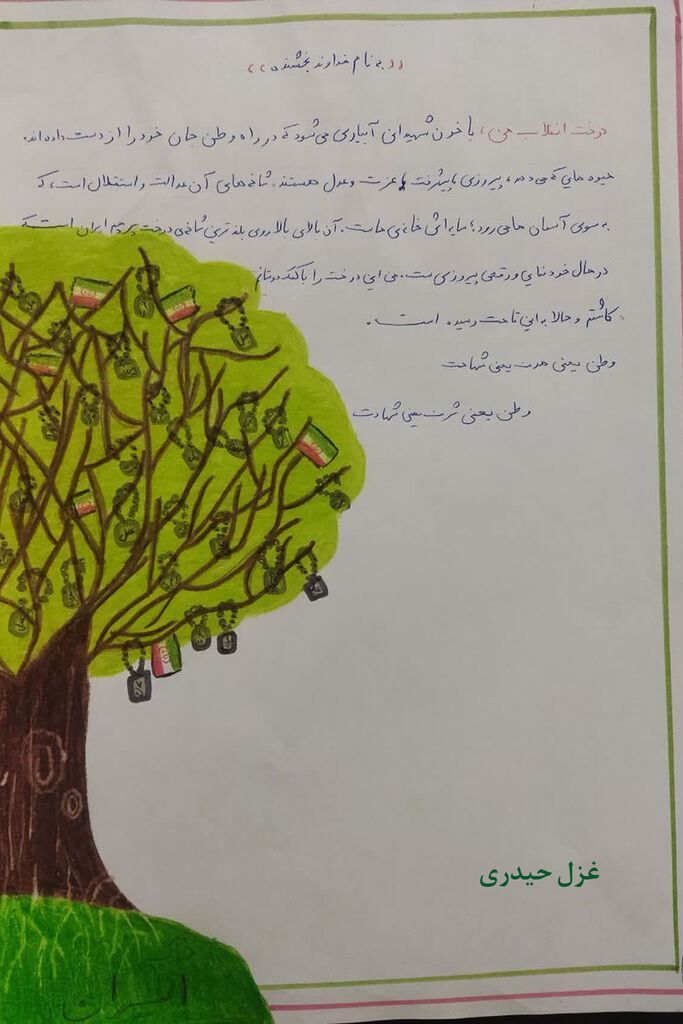 ((به نام خداوند بخشنده))
درخت انقلاب من، با خون شهیدانی آبیاری می‌شود که در راه وطن جان خود را از دست داده اند.
میوه هایی که می دهد، پیروزی، پیشرفت، عزت و عدل هستند. شاخه های آن عدالت و استقلال است، که
به سوی آسمان ها می رود؛ مایه‌اش خانه‌ی ماست. آن بالای بالا روی بلندترین شاخه‌ی درخت پرچم ایران است که
در حال خودنمایی و رقص پیروزی ست. من این درخت را با کمک دوستانم
کاشتم و حالا به این قامت رسیده است.
وطن یعنی هدف یعنی شهامت
وطن یعنی شرف یعنی شهادت
غزل حیدری
ایران